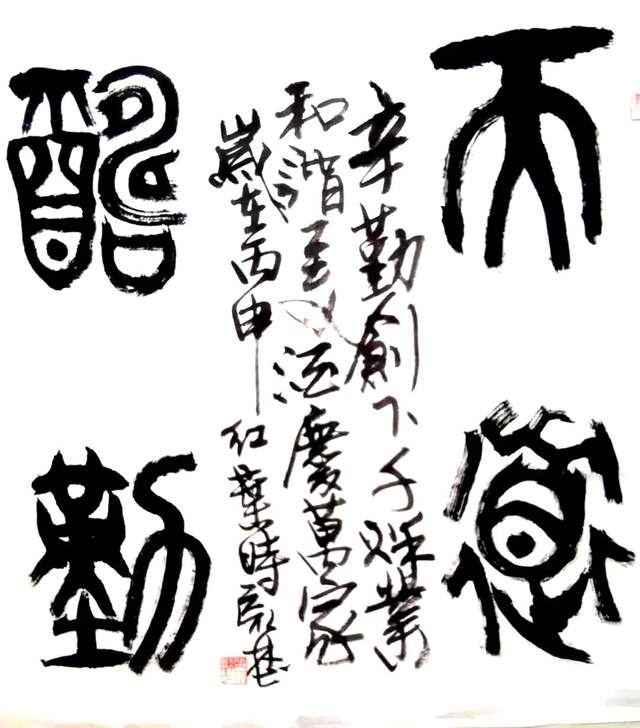 天道
酬勤
辛勤創下千秋業
和谐酒慶萬家
歲在丙申红葉時